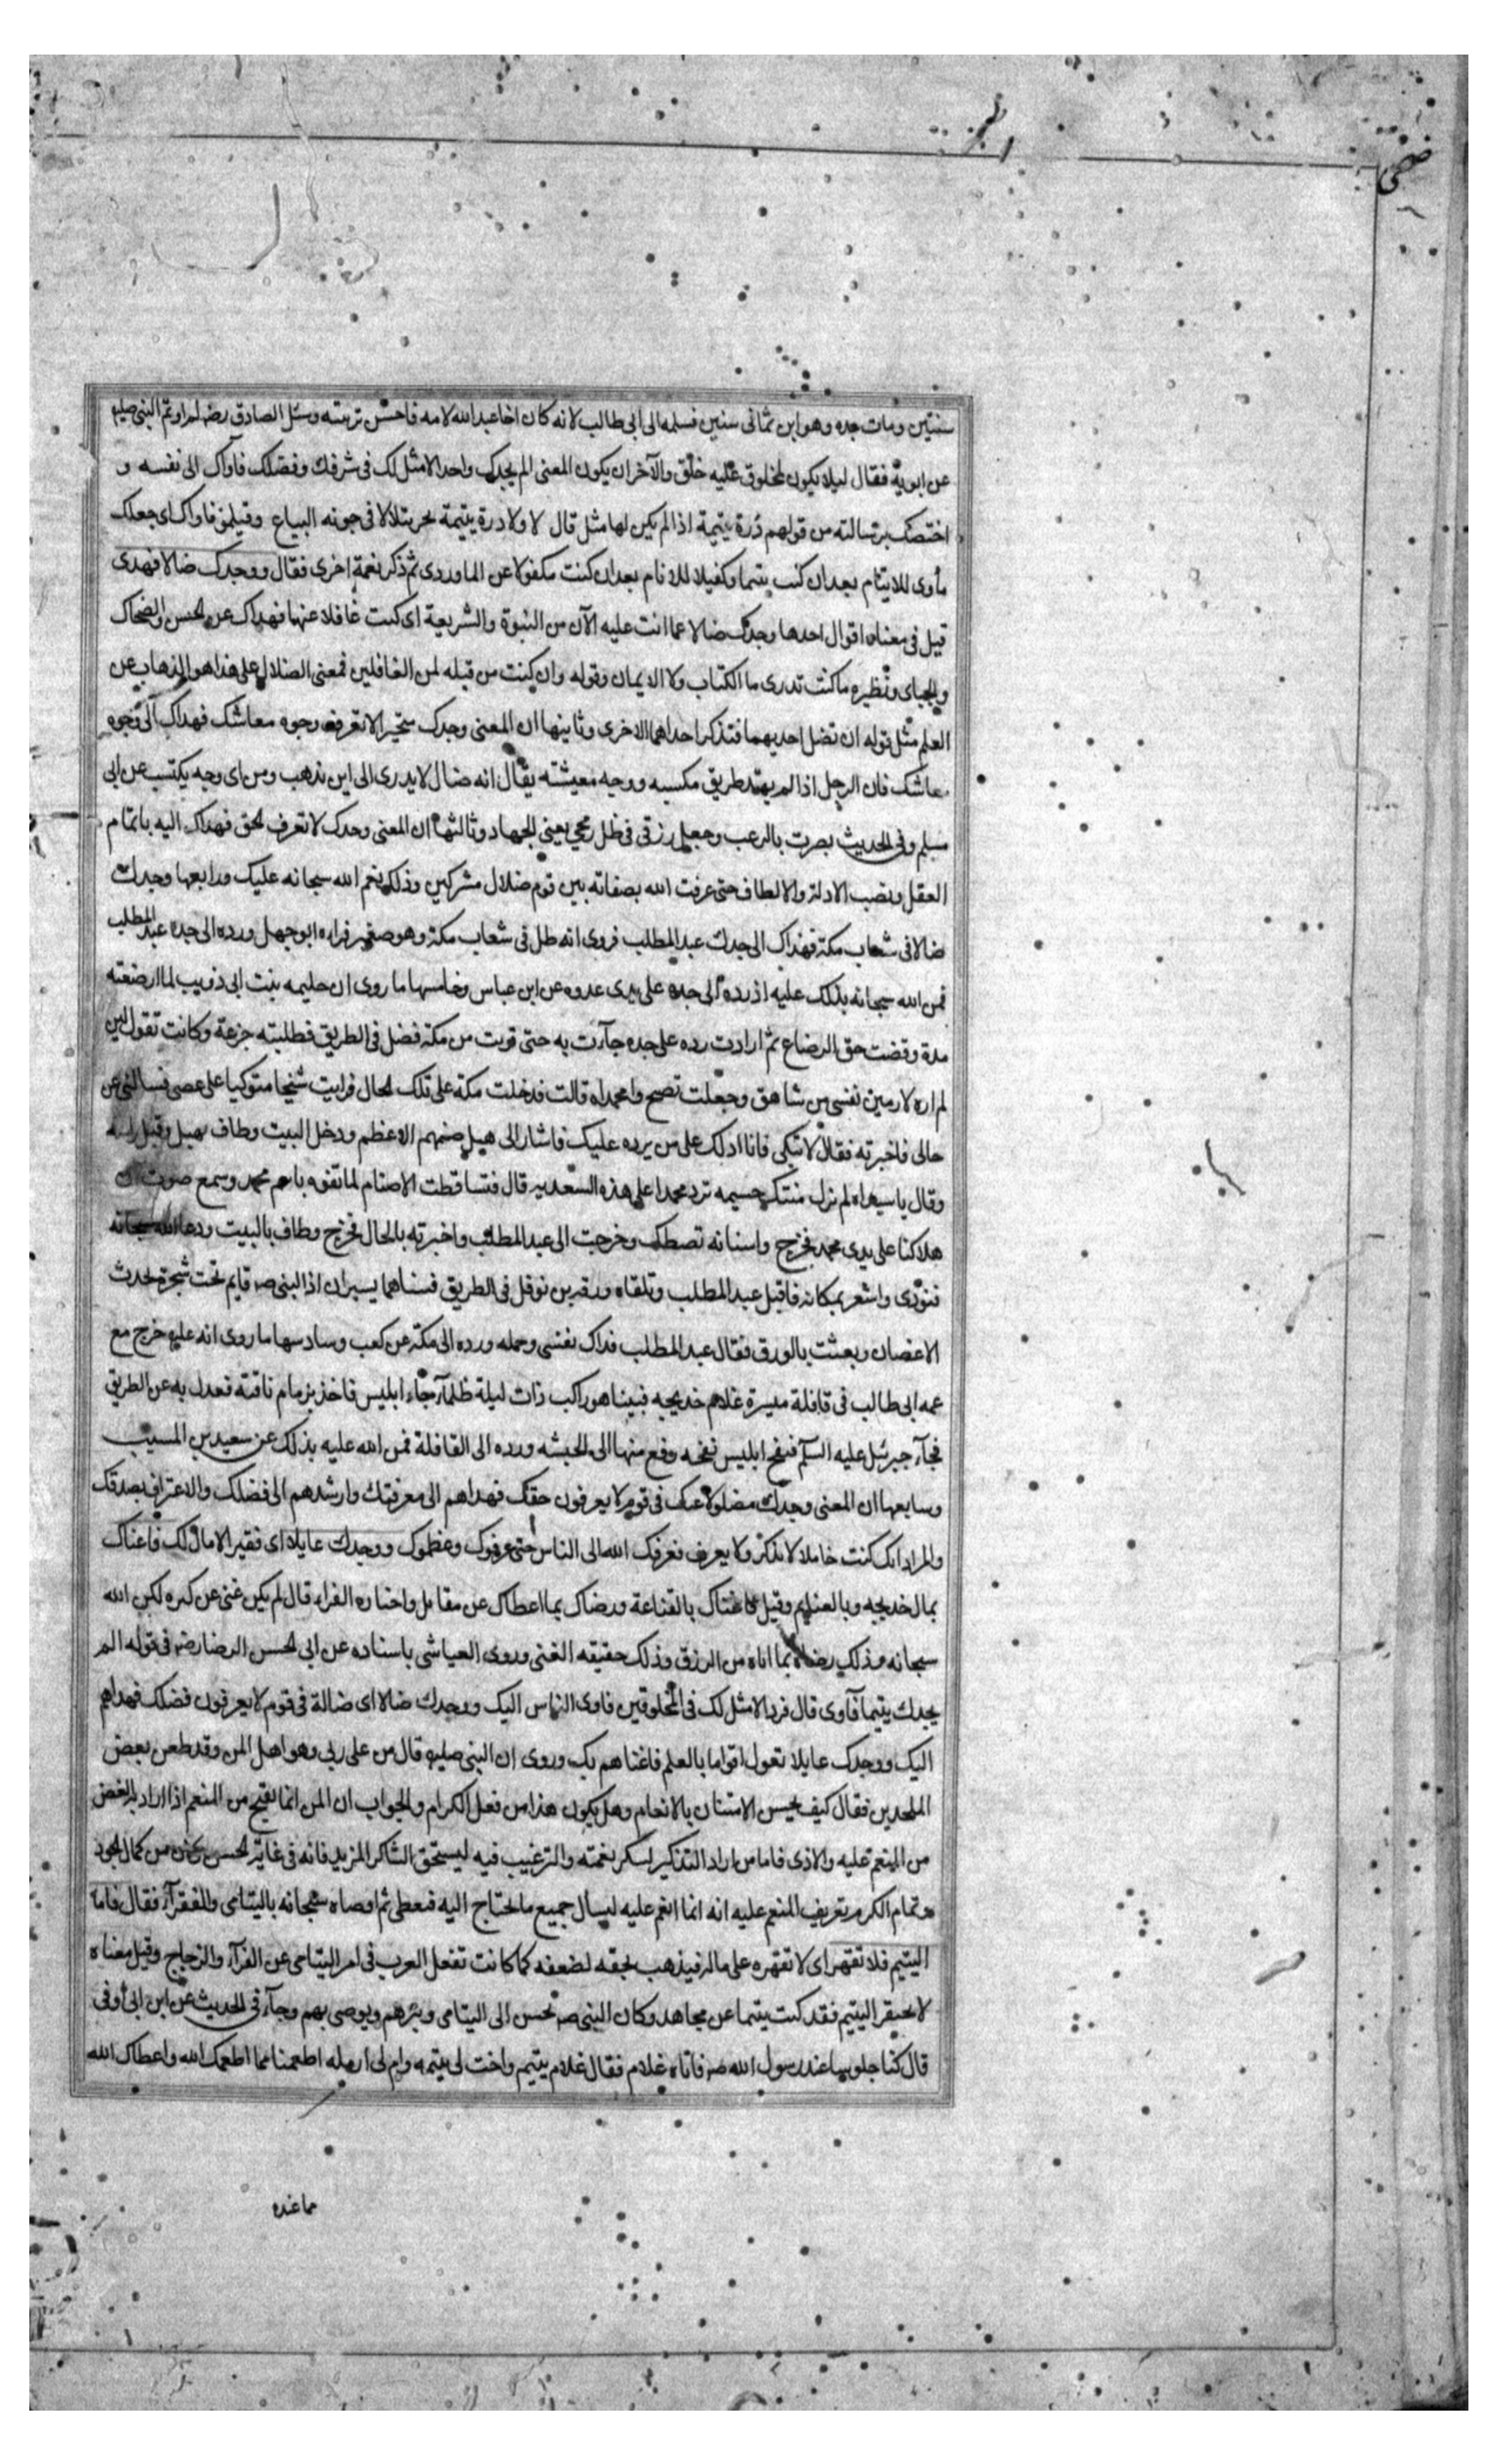 ضحى
سنتين ومات جده وهو ابن ثماني سنين فسلمه الى ابي طالب لانه كان اخا عبد الله لامه فاحسن تربيته وسئل الصادق رضه لم اوتم النبى صليم
عن ابويه فقال ليلا يكون لمخلوق عليه خلق والآخر ان يكون المعنى الم يجدك واحدا لا مثل لك فى شرفك وفضلك فآواك الى نفسه و
اختصك برسالته من قولهم درة يتيمة اذا لم يكن لها مثل قال لا ولا درة يتيمة بحر يتلالا فى جونه البياع وقيل فاواك اى جعلك
مأوى للايتام بعد ان كنت يتيما وكفيلا للانام بعد ان كنت مكفولا عن الماوردى ثم ذكر نعمة اخرى فقال ووجدك ضالا فهدى
قيل فى معناه اقوال احدها وجدك ضالا عما انت عليه الآن من النبوة والشريعة اى كنت غافلا عنها فهداك عن الحسن والضحاك
والجباى ونظيره ما كنت تدرى ما الكتاب ولا الايمان وقوله وان كنت من قبله لمن الغافلين فمعنى الضلال على هذا هو الذهاب عن
العلم مثل قوله ان تضل احديهما فتذكر احداهما الاخرى وثانيها ان المعنى وجدك متحيرا لا تعرف وجوه معاشك فهداك الى وجوه
معاشك فان الرجل اذا لم يهتد طريق مكسبه ووجه معيشته يقال انه ضال لا يدرى الى اين يذهب ومن اى وجه يكتسب عن ابى
مسلم وفى الحديث نصرت بالرعب وجعل رزقى فى ظل رمحى يعنى الجهاد وثالثها ان المعنى وجدك لا تعرف الحق فهداك اليه باتمام
العقل ونصب الادلة والالطاف حتى عرفت الله بصفاته بين قوم ضلال مشركين وذلك نعم الله سبحانه عليك ورابعها وجدك
ضالا فى شعاب مكة فهداك الى جدك عبد المطلب فروى انه ضل فى شعاب مكة وهو صغير فراه ابو جهل ورده الى جده عبد المطلب
فمن الله سبحانه بذلك عليه اذ رده الى جده على يدى عدوه عن ابن عباس وخامسها ما روى ان حليمه بنت ابى ذويب لما ارضعته
مدة وقضت حق الرضاع ثم ارادت رده على جده جآءت به حتى قربت من مكة فضل فى الطريق فطلبته جزعة وكانت تقول لين
لم اره لارمين نفسى من شاهق وجعلت تصيح وامحمداه قالت فدخلت مكة على تلك الحال فرايت شيخا متوكيا على عصى فسالنى عن
حالى فاخبرته فقال لا تبكى فانا ادلك على من يرده عليك فاشار الى هبل صنمهم الاعظم ودخل البيت وطاف بهبل وقبل راسه
وقال يا سيداه لم تزل منتك جسيمه ترد محمدا على هذه السعديه قال فتساقطت الاصنام لما تفوه باسم محمد وسمع صوت ان
هلاكنا على يدى محمد فخرج واسنانه تصطك وخرجت الى عبد المطلب واخبرته بالحال فخرج وطاف بالبيت ودعا الله سبحانه
فنودى واشعر بمكانه فاقبل عبد المطلب وتلقاه ورقة بن نوفل فى الطريق فبيناهما يسيران اذا النبى صه قايم تحت شجرة يجذب
الاغصان ويعبث بالورق فقال عبد المطلب فداك نفسى وحمله ورده الى مكة عن كعب وسادسها ما روى انه عليه خرج مع
عمه ابى طالب فى قافلة ميسرة غلام خديجه فبينا هو راكب ذات ليلة ظلمآء جاء ابليس فاخذ بزمام ناقته فعدل به عن الطريق
فجآء جبرئيل عليه السلم فنفخ ابليس نفخه وقع منها الى الحبشه ورده الى القافلة فمن الله عليه بذلك عن سعيد بن المسيب
وسابعها ان المعنى وجدك مضلولا عنك فى قوم لا يعرفون حقك فهداهم الى معرفتك وارشدهم الى فضلك والاعتراف بصدقك
والمراد انك كنت خاملا لا تذكر ولا يعرف فعرفك الله الى الناس حتى عرفوك وعظموك ووجدك عايلا اى فقيرا لا مال لك فاغناك
بمال خديجه وبالغنايم وقيل فاغناك بالقناعة ورضاك بما اعطاك عن مقاتل واختاره الفراء قال لم يكن غنى عن كثره لكن الله
سبحانه وذلك رضاه بما اتاه من الرزق وذلك حقيقه الغنى وروى العياشى باسناده عن ابى الحسن الرضا رضه فى قوله الم
يجدك يتيما فآوى قال فردا لا مثل لك فى المخلوقين فاوى الناس اليك ووجدك ضالا اى ضالة فى قوم لا يعرفون فضلك فهداهم
اليك ووجدك عايلا تعول اقواما بالعلم فاغناهم بك وروى ان النبى صليه قال من على ربى وهو اهل المن وقد طعن بعض
الملحدين فقال كيف يحسن الامتنان بالانعام وهل يكون هذا من فعل الكرام والجواب ان المن انما يقبح من المنعم اذا اراد به الغض
من المنعم عليه والاذى فاما من اراد التذكير لشكر نعمته والترغيب فيه ليستحق الشاكر المزيد فانه فى غاية الحسن ولان من كمال الجود
وتمام الكرم تعريف المنعم عليه انه انما انعم عليه ليسال جميع ما يحتاج اليه فيعطى ثم اوصاه سبحانه باليتامى والفقرآء فقال فاما
اليتيم فلا تقهر اى لا تقهره على ماله فيذهب بحقه لضعفه كما كانت تفعل العرب فى امر اليتامى عن الفرآء والزجاج وقيل معناه
لا تحتقر اليتيم فقد كنت يتيما عن مجاهد وكان النبى صه يحسن الى اليتامى ويبرهم ويوصى بهم وجآء فى الحديث عن ابن ابى اوفى
قال كنا جلوسا عند رسول الله صه فاتاه غلام فقال غلام يتيم واخت لى يتيمه وام لى ارمله اطعمنا مما اطعمك الله واعطاك الله
مما عنده